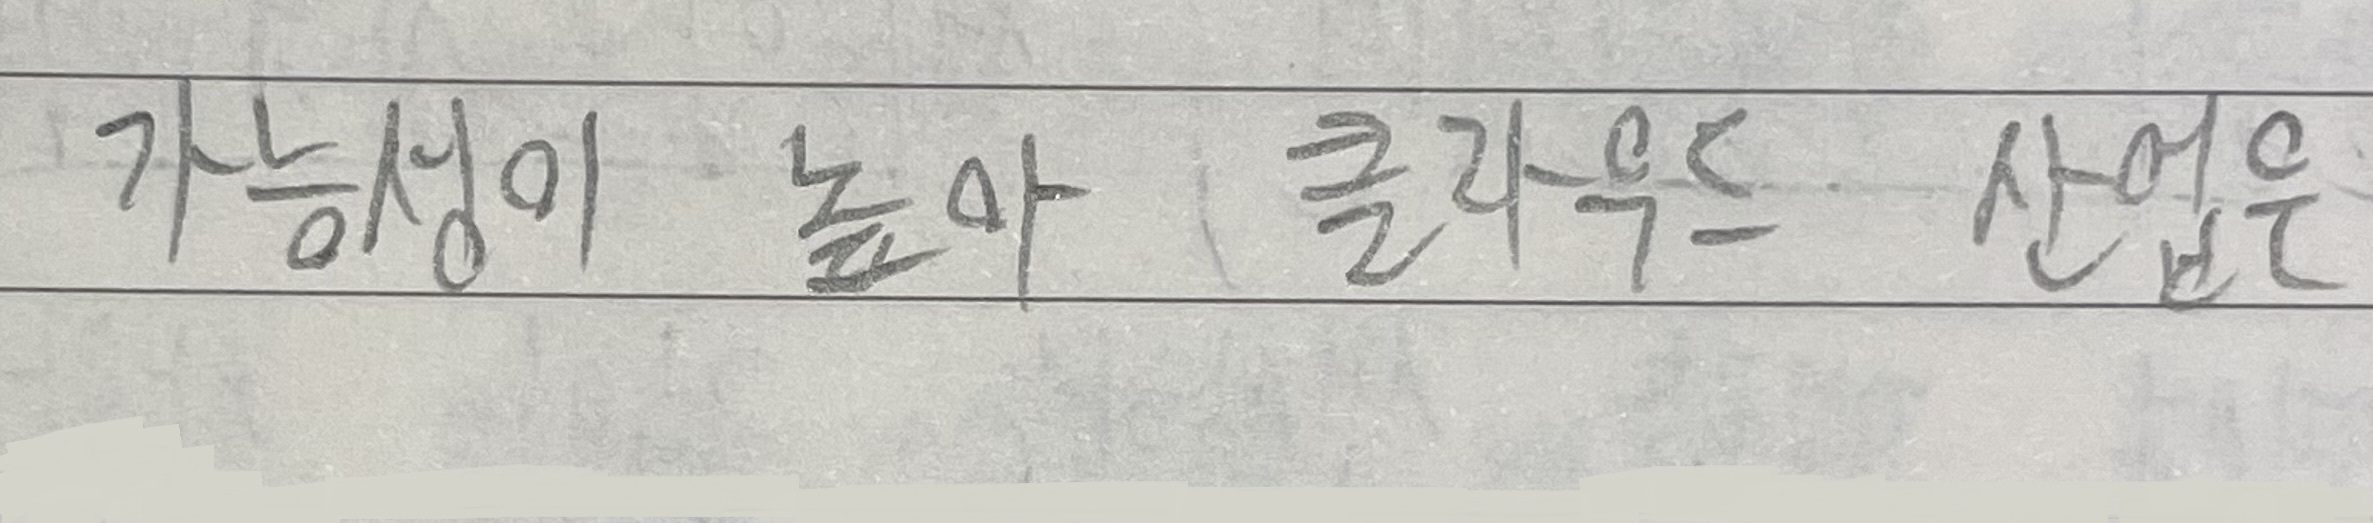 가능성이 높아 클라우드 산업은